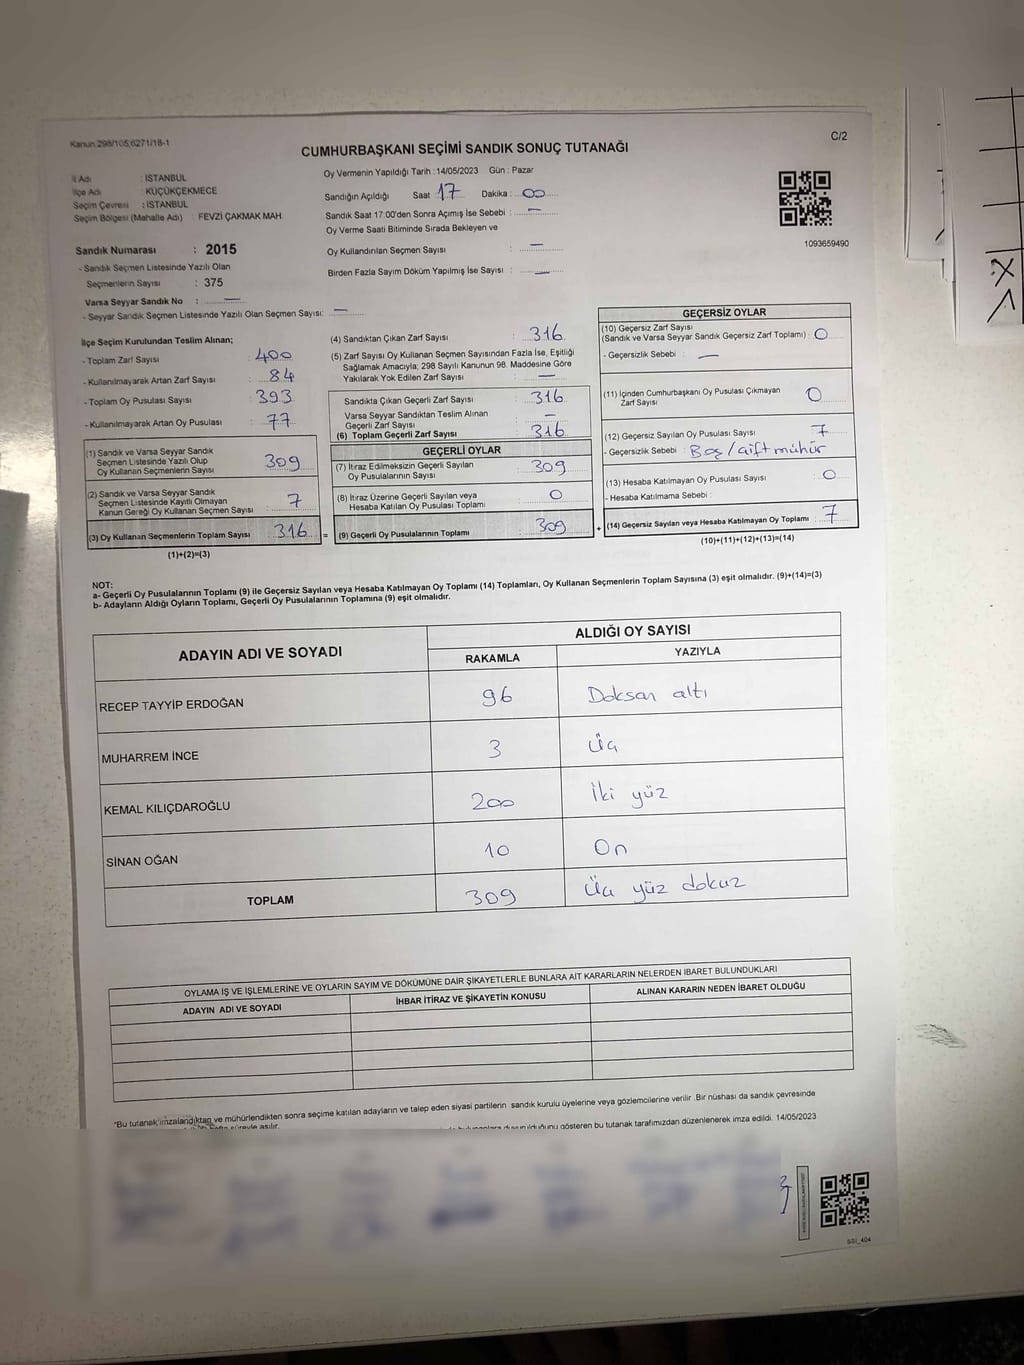 Kanun 298/105,6271/18-1
C/2
CUMHURBAŞKANI SEÇİMİ SANDIK SONUÇ TUTANAĞI
İl Adı : İSTANBUL
İlçe Adı : KÜÇÜKÇEKMECE
Seçim Çevresi : İSTANBUL
Seçim Bölgesi (Mahalle Adı) : FEVZİ ÇAKMAK MAH.
Sandık Numarası : 2015
- Sandık Seçmen Listesinde Yazılı Olan
Seçmenlerin Sayısı : 375
Varsa Seyyar Sandık No : —
- Seyyar Sandık Seçmen Listesinde Yazılı Olan Seçmen Sayısı: —
Oy Vermenin Yapıldığı Tarih : 14/05/2023 Gün : Pazar
Sandığın Açıldığı Saat 17 Dakika : 00
Sandık Saat 17:00'den Sonra Açımış İse Sebebi : —
Oy Verme Saati Bitiminde Sırada Bekleyen ve
Oy Kullandırılan Seçmen Sayısı : —
Birden Fazla Sayım Döküm Yapılmış İse Sayısı : —
1093659490
İlçe Seçim Kurulundan Teslim Alınan;
- Toplam Zarf Sayısı : 400
- Kullanılmayarak Artan Zarf Sayısı : 84
- Toplam Oy Pusulası Sayısı : 393
- Kullanılmayarak Artan Oy Pusulası : 77
(1) Sandık ve Varsa Seyyar Sandık
Seçmen Listesinde Yazılı Olup
Oy Kullanan Seçmenlerin Sayısı : 309
(2) Sandık ve Varsa Seyyar Sandık
Seçmen Listesinde Kayıtlı Olmayan
Kanun Gereği Oy Kullanan Seçmen Sayısı : 7
(3) Oy Kullanan Seçmenlerin Toplam Sayısı : 316
(1)+(2)=(3)
(4) Sandıktan Çıkan Zarf Sayısı : 316
(5) Zarf Sayısı Oy Kullanan Seçmen Sayısından Fazla İse, Eşitliği
Sağlamak Amacıyla; 298 Sayılı Kanunun 98. Maddesine Göre
Yakılarak Yok Edilen Zarf Sayısı : —
Sandıkta Çıkan Geçerli Zarf Sayısı : 316
Varsa Seyyar Sandıktan Teslim Alınan
Geçerli Zarf Sayısı : —
(6) Toplam Geçerli Zarf Sayısı : 316
GEÇERLİ OYLAR
(7) İtiraz Edilmeksizin Geçerli Sayılan
Oy Pusulalarının Sayısı : 309
(8) İtiraz Üzerine Geçerli Sayılan veya
Hesaba Katılan Oy Pusulası Toplamı : 0
= (9) Geçerli Oy Pusulalarının Toplamı : 309 +
GEÇERSİZ OYLAR
(10) Geçersiz Zarf Sayısı
(Sandık ve Varsa Seyyar Sandık Geçersiz Zarf Toplamı) : 0
- Geçersizlik Sebebi : —
(11) İçinden Cumhurbaşkanı Oy Pusulası Çıkmayan
Zarf Sayısı : 0
(12) Geçersiz Sayılan Oy Pusulası Sayısı : 7
- Geçersizlik Sebebi : Boş/çift mühür
(13) Hesaba Katılmayan Oy Pusulası Sayısı : 0
- Hesaba Katılmama Sebebi :
(14) Geçersiz Sayılan veya Hesaba Katılmayan Oy Toplamı : 7
(10)+(11)+(12)+(13)=(14)
NOT:
a- Geçerli Oy Pusulalarının Toplamı (9) ile Geçersiz Sayılan veya Hesaba Katılmayan Oy Toplamı (14) Toplamları, Oy Kullanan Seçmenlerin Toplam Sayısına (3) eşit olmalıdır. (9)+(14)=(3)
b- Adayların Aldığı Oyların Toplamı, Geçerli Oy Pusulalarının Toplamına (9) eşit olmalıdır.
ADAYIN ADI VE SOYADI
ALDIĞI OY SAYISI
RAKAMLA YAZIYLA
RECEP TAYYİP ERDOĞAN 96 Doksan altı
MUHARREM İNCE 3 Üç
KEMAL KILIÇDAROĞLU 200 İki yüz
SİNAN OĞAN 10 On
TOPLAM 309 Üç yüz dokuz
OYLAMA İŞ VE İŞLEMLERİNE VE OYLARIN SAYIM VE DÖKÜMÜNE DAİR ŞİKAYETLERLE BUNLARA AİT KARARLARIN NELERDEN İBARET BULUNDUKLARI
ADAYIN ADI VE SOYADI İHBAR İTİRAZ VE ŞİKAYETİN KONUSU ALINAN KARARIN NEDEN İBARET OLDUĞU
*Bu tutanak imzalandıktan ve mühürlendikten sonra seçime katılan adayların ve talep eden siyasi partilerin sandık kurulu üyelerine veya gözlemcilerine verilir .Bir nüshası da sandık çevresinde
süreyle asılır.
duyurulduğunu gösteren bu tutanak tarafımızdan düzenlenerek imza edildi. 14/05/2023
SSI_404